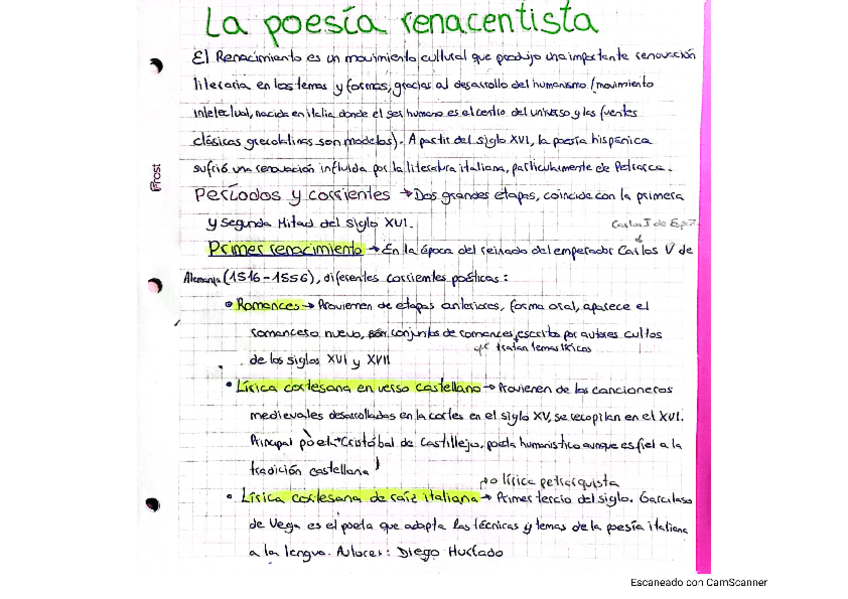 La poesía renacentista
El Renacimiento es un movimiento cultural que produjo una importante renovación
literaria en los temas y formas, gracias al desarrollo del humanismo (movimiento
intelectual, nacida en italia donde el ser humano es el centro del universo y las fuentes
clásicas grecolatinas son modelos). A partir del siglo XVI, la poesía hispánica
sufrió una renovación influida por la literatura italiana, particularmente de Petrarca.
Períodos y corrientes → Dos grandes etapas, coincide con la primera
y segunda Mitad del siglo XVI.
Carlos I de Esp
Primer renacimiento → En la época del reinado del emperador Carlos V de
Alemania (1516-1556), diferentes corrientes poéticas:
• Romances → Provienen de etapas anteriores, forma oral, aparece el
romancero nuevo, son conjuntos de romances, escritos por autores cultos
tratan temas líricos
de los siglos XVI y XVII
• Lírica cortesana en verso castellano → Provienen de los cancioneros
medievales desarrolladas en la cortes en el siglo XV, se recopilan en el XVI.
Principal poeta Cristóbal de Castillejo, poeta humanistico aunque es fiel a la
tradición castellana
→ o lírica petrarquista
• Lírica cortesana de raíz italiana → Primer tercio del siglo. Garcilaso
de Vega es el poeta que adapta las técnicas y temas de la poesía italiana
a la lengua. Autores: Diego Hurtado
Escaneado con CamScanner